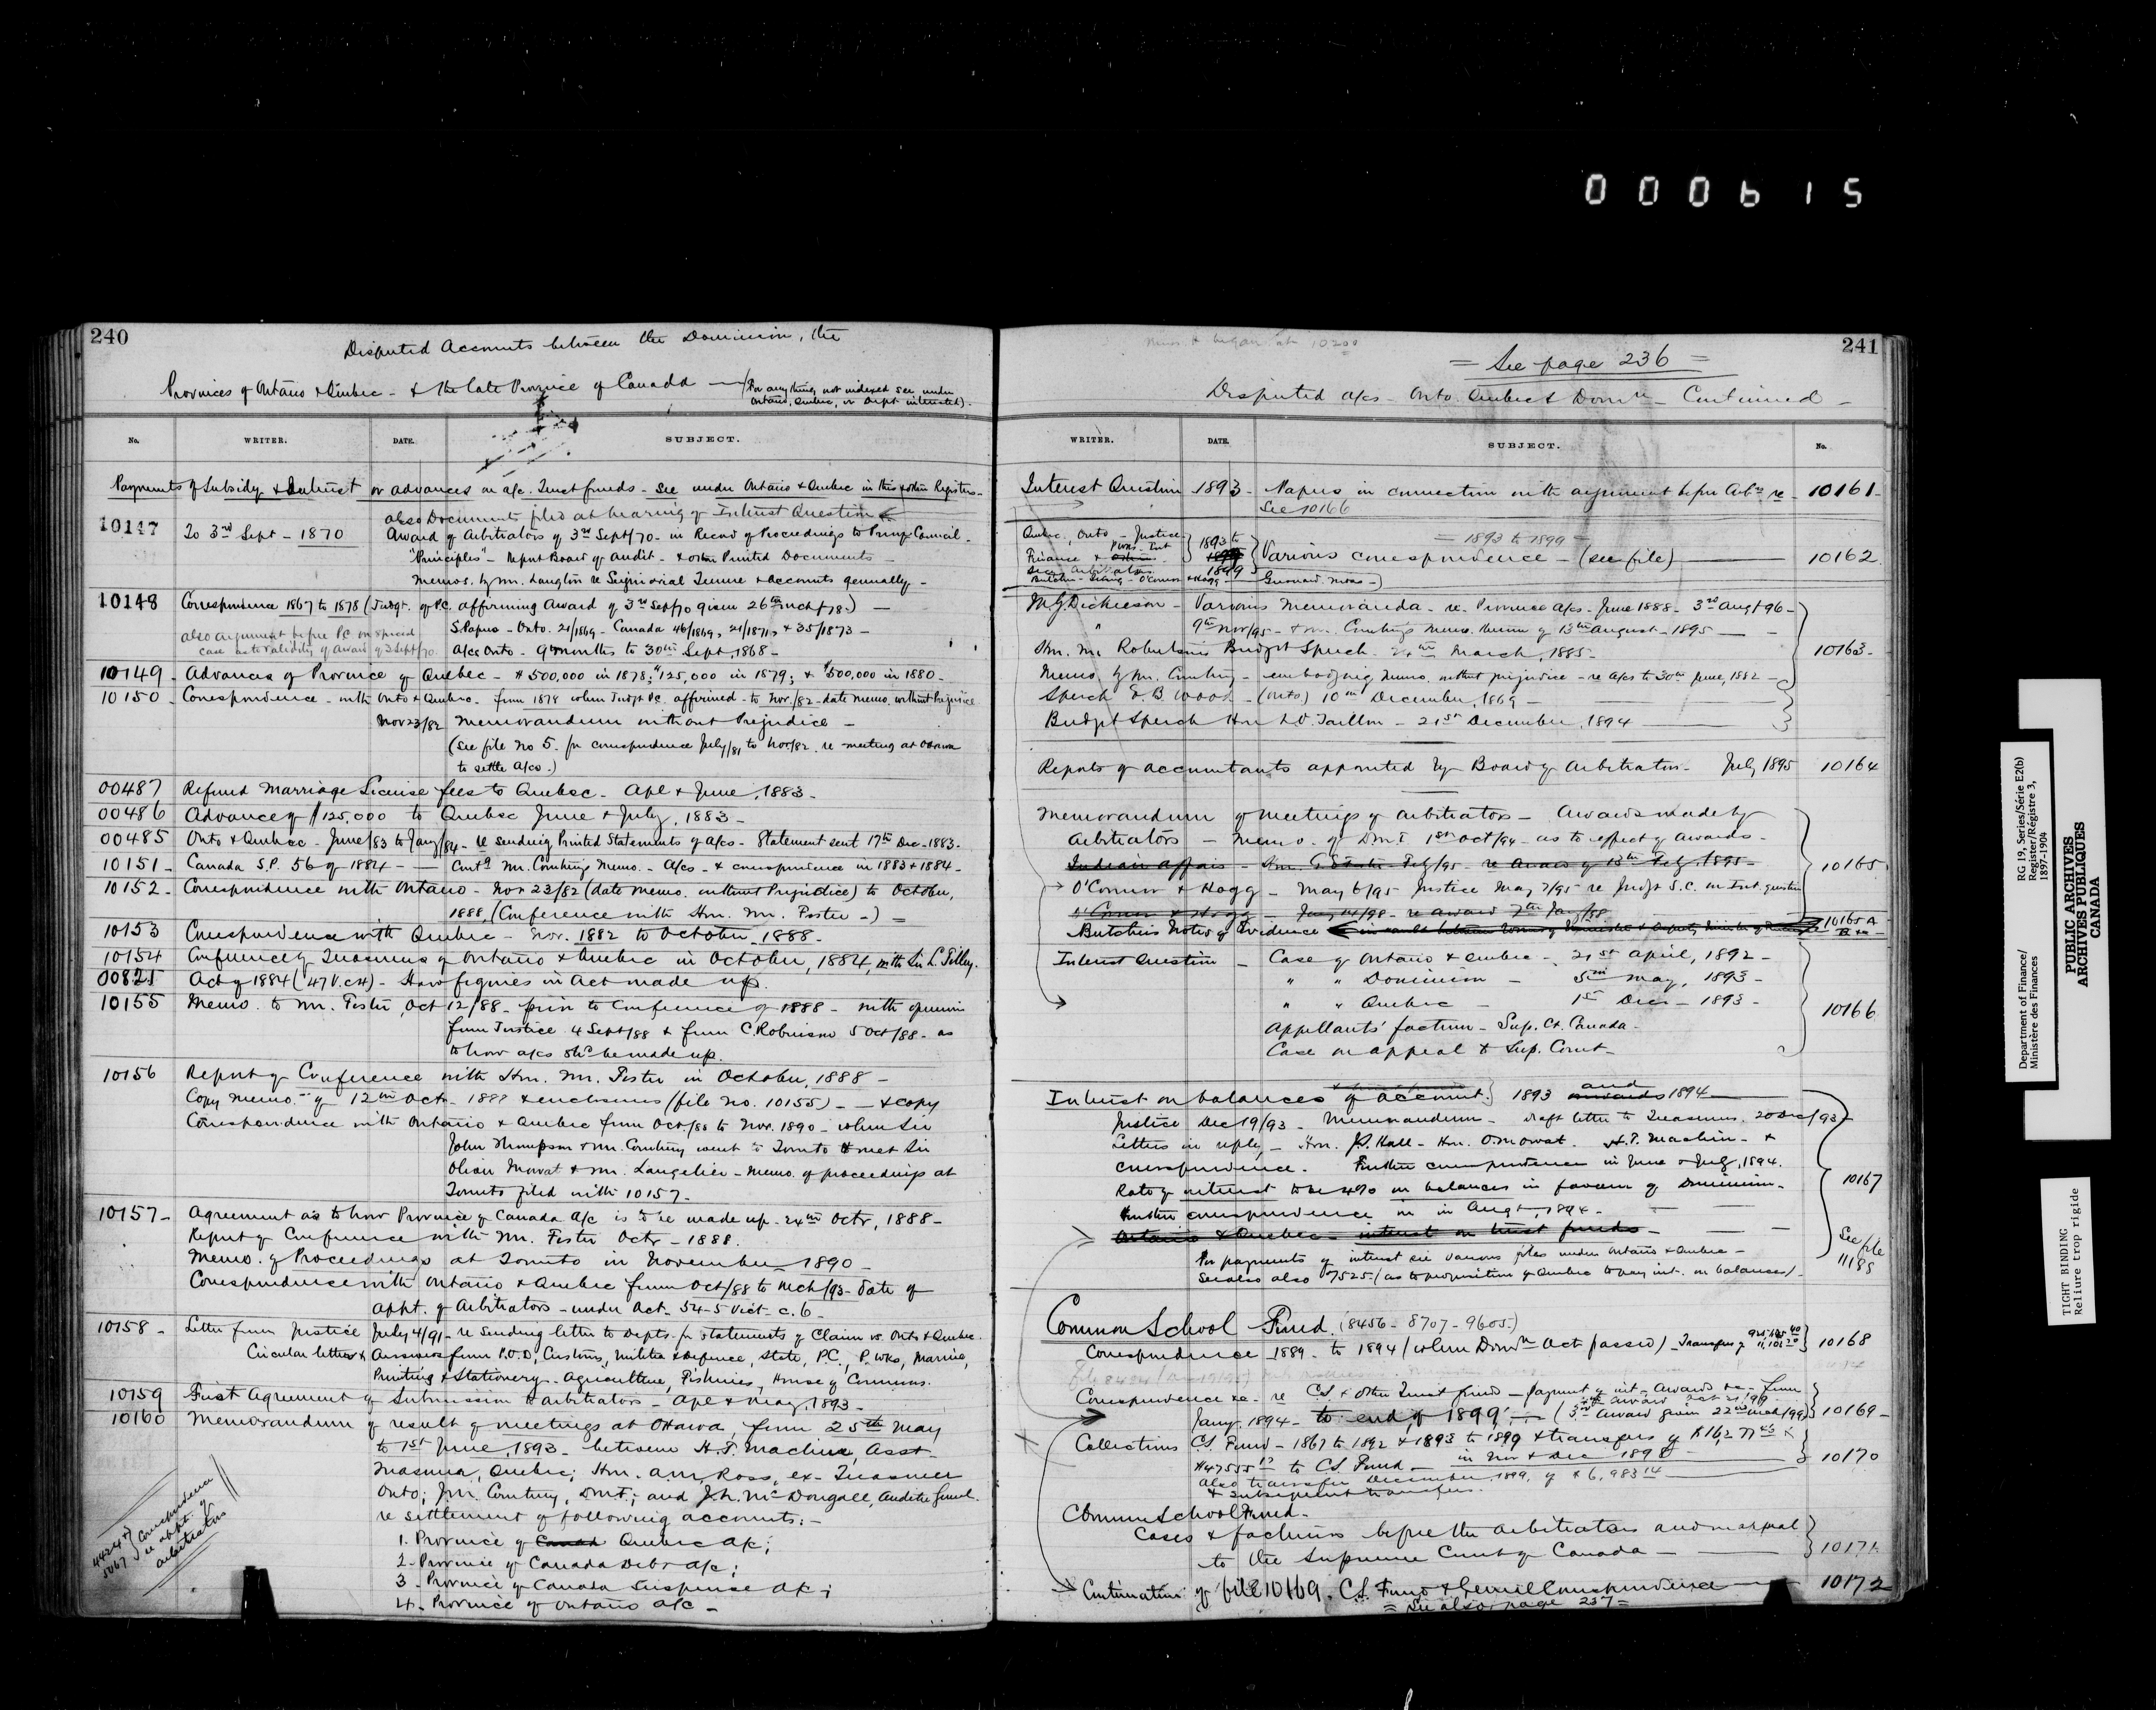 000615
240
Disputed Accounts between the Dominion, the
Provinces of Ontario & Quebec - & the late Province of Canada - (For anything not indexed see under
Ontario, Quebec, or Dept interested).
No. WRITER. DATE. SUBJECT.
Payments of Subsidy & Interest or advances on a/c. Trust funds - See under Ontario & Quebec in this & other Registers -
also Documents filed at hearing of Interest Question
10147 To 3rd Sept - 1870 Award of Arbitrators of 3rd Sept/70 - in Record of Proceedings to Privy Council -
"Principles" - Report Board of Audit - & other Printed Documents -
Memos. by Mr. Langton re Seignorial Tenure & accounts generally -
10148 Correspondence 1867 to 1878 (Judgt. of P.C. affirming Award of 3rd Sept/70 given 26th Mch/78) -
also argument before PC on special
case as to validity of Award of 3 Sept/70.
S. Papers - Onto. 21/1869 - Canada 46/1869, 21/1871, & 35/1873 -
A/cs Onto - 9 months to 30th Sept, 1868 -
10149 - Advances of Province of Quebec - $500,000 in 1878; $125,000 in 1879; & $500,000 in 1880 -
10150 - Correspondence - with Onto & Quebec - from 1878 when Judgt PC. affirmed - to Nov./82 - date memo. without Prejudice
Nov 23/82 Memorandum without Prejudice -
(See file No 5. for correspondence July/81 to Nov/82. re meeting at Ottawa
to settle a/cs -)
00487 Refund Marriage License fees to Quebec - Apl & June, 1883 -
00486 Advance of $125,000 to Quebec June & July, 1883 -
00485 Onto & Quebec - June/83 to Jany/84 - re sending Printed Statements of a/cs - Statement sent 17th Dec - 1883 -
10151 - Canada S.P. 56 of 1884 - Contg Mr. Courtney's Memo. - A/cs - & correspondence in 1883 & 1884 -
10152 - Correspondence with Ontario - Nov 23/82 (date memo. without Prejudice) to October,
1888, (Conference with Hon. Mr. Foster -) =
10153 Correspondence with Quebec - Nov. 1882 to October 1888 -
10154 Conference of Treasurers of Ontario & Quebec in October, 1884, with Sir L. Tilley.
00825 Act of 1884 (47 V. c 4) - How figures in Act made up.
10155 Memo. to Mr. Foster, Oct 12/88 - prior to Conference of 1888 - with opinion
from Justice 4 Sept/88 & from C. Robinson 5 Oct/88 - as
to how a/cs shd be made up.
10156 Report of Conference with Hon. Mr. Foster in October, 1888 -
Copy memo. of 12th Oct - 1888 & enclosures (file No. 10155) - & copy
Correspondence with Ontario & Quebec from Oct/88 to Nov. 1890 - when Sir
John Thompson & Mr. Courtney went to Toronto & met Sir
Oliver Mowat & Mr. Langelier - Memo. of proceedings at
Toronto filed with 10157 -
10157 - Agreement as to how Province of Canada a/c is to be made up - 24th Octr, 1888 -
Report of Conference with Mr. Foster Octr - 1888.
Memo. of Proceedings at Toronto in November 1890 -
Correspondence with Ontario & Quebec from Oct/88 to Mch/93 - date of
appt. of Arbitrators - under Act. 54-5 Vict - c. 6 -
10158 - Letter from Justice July 4/91 - re sending letter to Depts. for statements of Claim vs. Onto & Quebec.
Circular letter & Answers from P.O.D, Customs, Militia & Defence, State, P.C., P. Wks, Marine,
Printing & Stationery - Agriculture, Fisheries, House of Commons.
10159 - First Agreement of Submission to Arbitrators - Apl & May, 1893 -
10160 Memorandum of result of meetings at Ottawa, from 25th May
to 1st June, 1893 - between H.T. Machin, Asst
Treasurer, Quebec; Hon. A.M. Ross, ex-Treasurer
Onto; J.M. Courtney, D.M.F.; and J.L. McDougall, Auditor Genl.
re settlement of following accounts: -
1. Province of Quebec A/c;
2 - Province of Canada Debt a/c;
3 - Province of Canada Suspense a/c;
4 - Province of Ontario a/c -
5067
Correspondence
re appt. of
Arbitrators
241
= See page 236 =
Disputed a/cs - Onto. Quebec & Domn - Continued -
WRITER. DATE. SUBJECT. No.
Interest Question 1893 - Papers in connection with argument before Arbs re - 10161 -
See 10166
Quebec, Onto - Justice
Finance
1893 to
1899
= 1893 to 1899 =
Various correspondence - (see file) 10162
M.G. Dickieson - Various Memoranda - re Province a/cs - June 1888 - 3rd Augt 96 -
" 9th Nov/95 - & Mr. Courtney's Memo. thereon of 13th August - 1895 -
Hon. Mr. Robertson's Budget Speech - 24th March, 1885 - 10163 -
Memo by Mr. Courtney - embodying Memo. without prejudice - re a/cs to 30th June, 1882 -
Speech E.B. Wood - (Onto) 10th December, 1869 -
Budget Speech Hon L.O. Taillon - 21st December, 1894
Reports of accountants appointed by Board of Arbitrators - July 1895 10164
Memorandum of meetings of Arbitrators - Awards made by
Arbitrators - Memo. of D.M.F. 1st Oct/94 - as to effect of awards -
Indian Affairs - Feb/95 - re Award of 13th Feby. 1895 - 10165
O'Connor & Hogg - May 6/95 - Justice May 7/95 re Judgt S.C. on Int. question
O'Connor & Hogg - Jany 14/98 - re award 7th Jany/98
Butcher's Notes of Evidence 10165 A
Interest Question - Case of Ontario & Quebec - 21st April, 1892 -
" " Dominion - 5th May, 1893 -
" " Quebec - 1st Decr - 1893 -
Appellants' factum - Sup. Ct. Canada - 10166
Case on appeal to Sup. Court -
Interest on balances of account. 1893 and 1894
Justice Dec 19/93 - Memorandum - draft letter to Treasurers. 20 Dec/93
Letters in reply, - Hon. J.S. Hall - Hon. O. Mowat. H.T. Machin - &
correspondence. Further correspondence in June & July, 1894.
Rate of interest to be 4% on balances in favour of Dominion - 10167
Further correspondence in in Augt, 1894 -
Ontario & Quebec - interest on trust funds -
For payments of interest see various files under Ontario & Quebec -
See also also 7525 - (as to proposition of Quebec to pay int. on balances) -
See file
11185
Common School Fund. (8456 - 8707 - 9605 -)
Correspondence 1889 - to 1894 (when Domn Act passed) - Transfer of 10168
Correspondence &c - re C.S. & other Trust funds - payment of int - Awards &c - from
Jany. 1894 - to end of 1899 - (3rd Award given 22nd Mch/99) 10169 -
Collections C.S. Fund - 1867 to 1892 & 1893 to 1899 & transfers of
to C.S. Fund - in Nov & Dec 1898 10170
also transfer December 1899, of $6,983.14
& subsequent transfers.
Common School Fund -
Cases & factums before the arbitrators and on appeal
to the Supreme Court of Canada - 10171
Continuation of file 10169. C.S. Fund & General Correspondence 10172
= See also page 237 =
Department of Finance/
Ministère des Finances
RG 19, Series/Série E2(b)
Register/Régistre 3,
1897-1904
PUBLIC ARCHIVES
ARCHIVES PUBLIQUES
CANADA
TIGHT BINDING
Reliure trop rigide